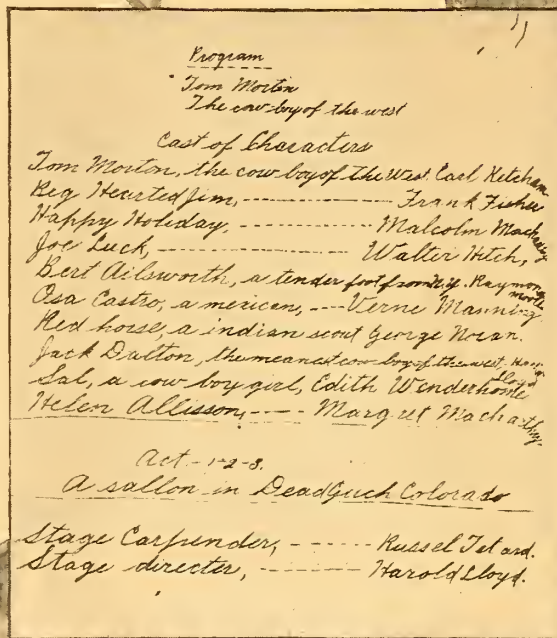 Program
Tom Morton
The cow-boy of the west
Cast of Characters
Tom Morton, the cow boy of the West. Carl Ketcham
Reg Hearted Jim, ---------- Frank Fisher
Happy Holiday, ---------- Malcolm
Joe Luck, ---------- Walter Hitch,
Bert Ailsworth, a tender foot from N.Y. Raymond
Osa Castro, a mexican, ---- Verne Manning
Red horse, a indian scout George Noran.
Jack Dalton, the meanest cow-boy of the west, Harold Lloyd
Sal, a cow boy girl, Edith Wenderholme
Helen Allisson, ----- Margret
Act - 1-2-3.
A sallon in Dead Guch Colorado
Stage Carpender, ------- Russel
Stage directer, ---------- Harold Lloyd.